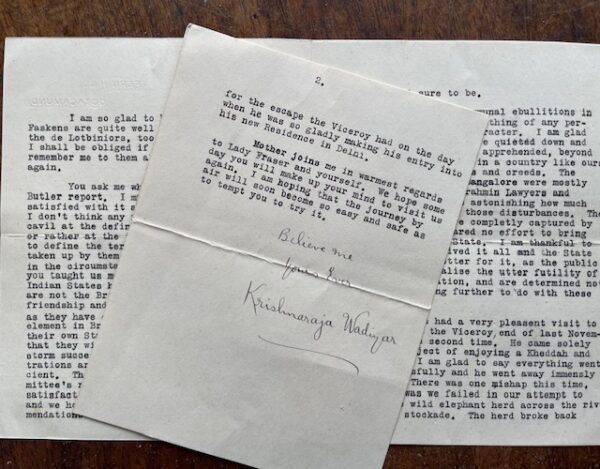 I am so glad to
Faskens are quite well
the de Lotbiniors, too
I shall be obliged if
remember me to them a
again.
You ask me wh
Butler report. I m
satisfied with it s
I don't think any
cavil at the defin
or rather at the
to define the ter
taken up by them
in the circumsta
you taught us m
Indian States h
are not the Br
friendship and
as they have
element in Br
their own Sta
that they wi
storm succe
trations ar
cient. Th
mittee's r
satisfact
and we ho
mendation
2.
for the escape the Viceroy had on the day
when he was so gladly making his entry into
his new Residence in Delhi.
Mother joins me in warmest regards
to Lady Fraser and yourself. We hope some
day you will make up your mind to visit us
again. I am hoping that the journey by
air will soon become so easy and safe as
to tempt you to try it.
Believe me
Yours Ever
Krishnaraja Wadiyar
sure to be.
unal ebullitions in
thing of any per-
racter. I am glad
e quieted down and
apprehended, beyond
in a country like our
s and creeds. The
angalore were mostly
rahmin Lawyers and
astonishing how much
those disturbances. The
e completely captured by
ared no effort to bring
State. I am thankful to
ived it all and the State
tter for it, as the public
alise the utter futility of
tion, and are determined not
ng further to do with these
had a very pleasant visit to
the Viceroy, end of last Novem-
second time. He came solely
ject of enjoying a Kheddah and
I am glad to say everything went
sfully and he went away immensely
There was one mishap this time,
was we failed in our attempt to
wild elephant herd across the riv
stockade. The herd broke back